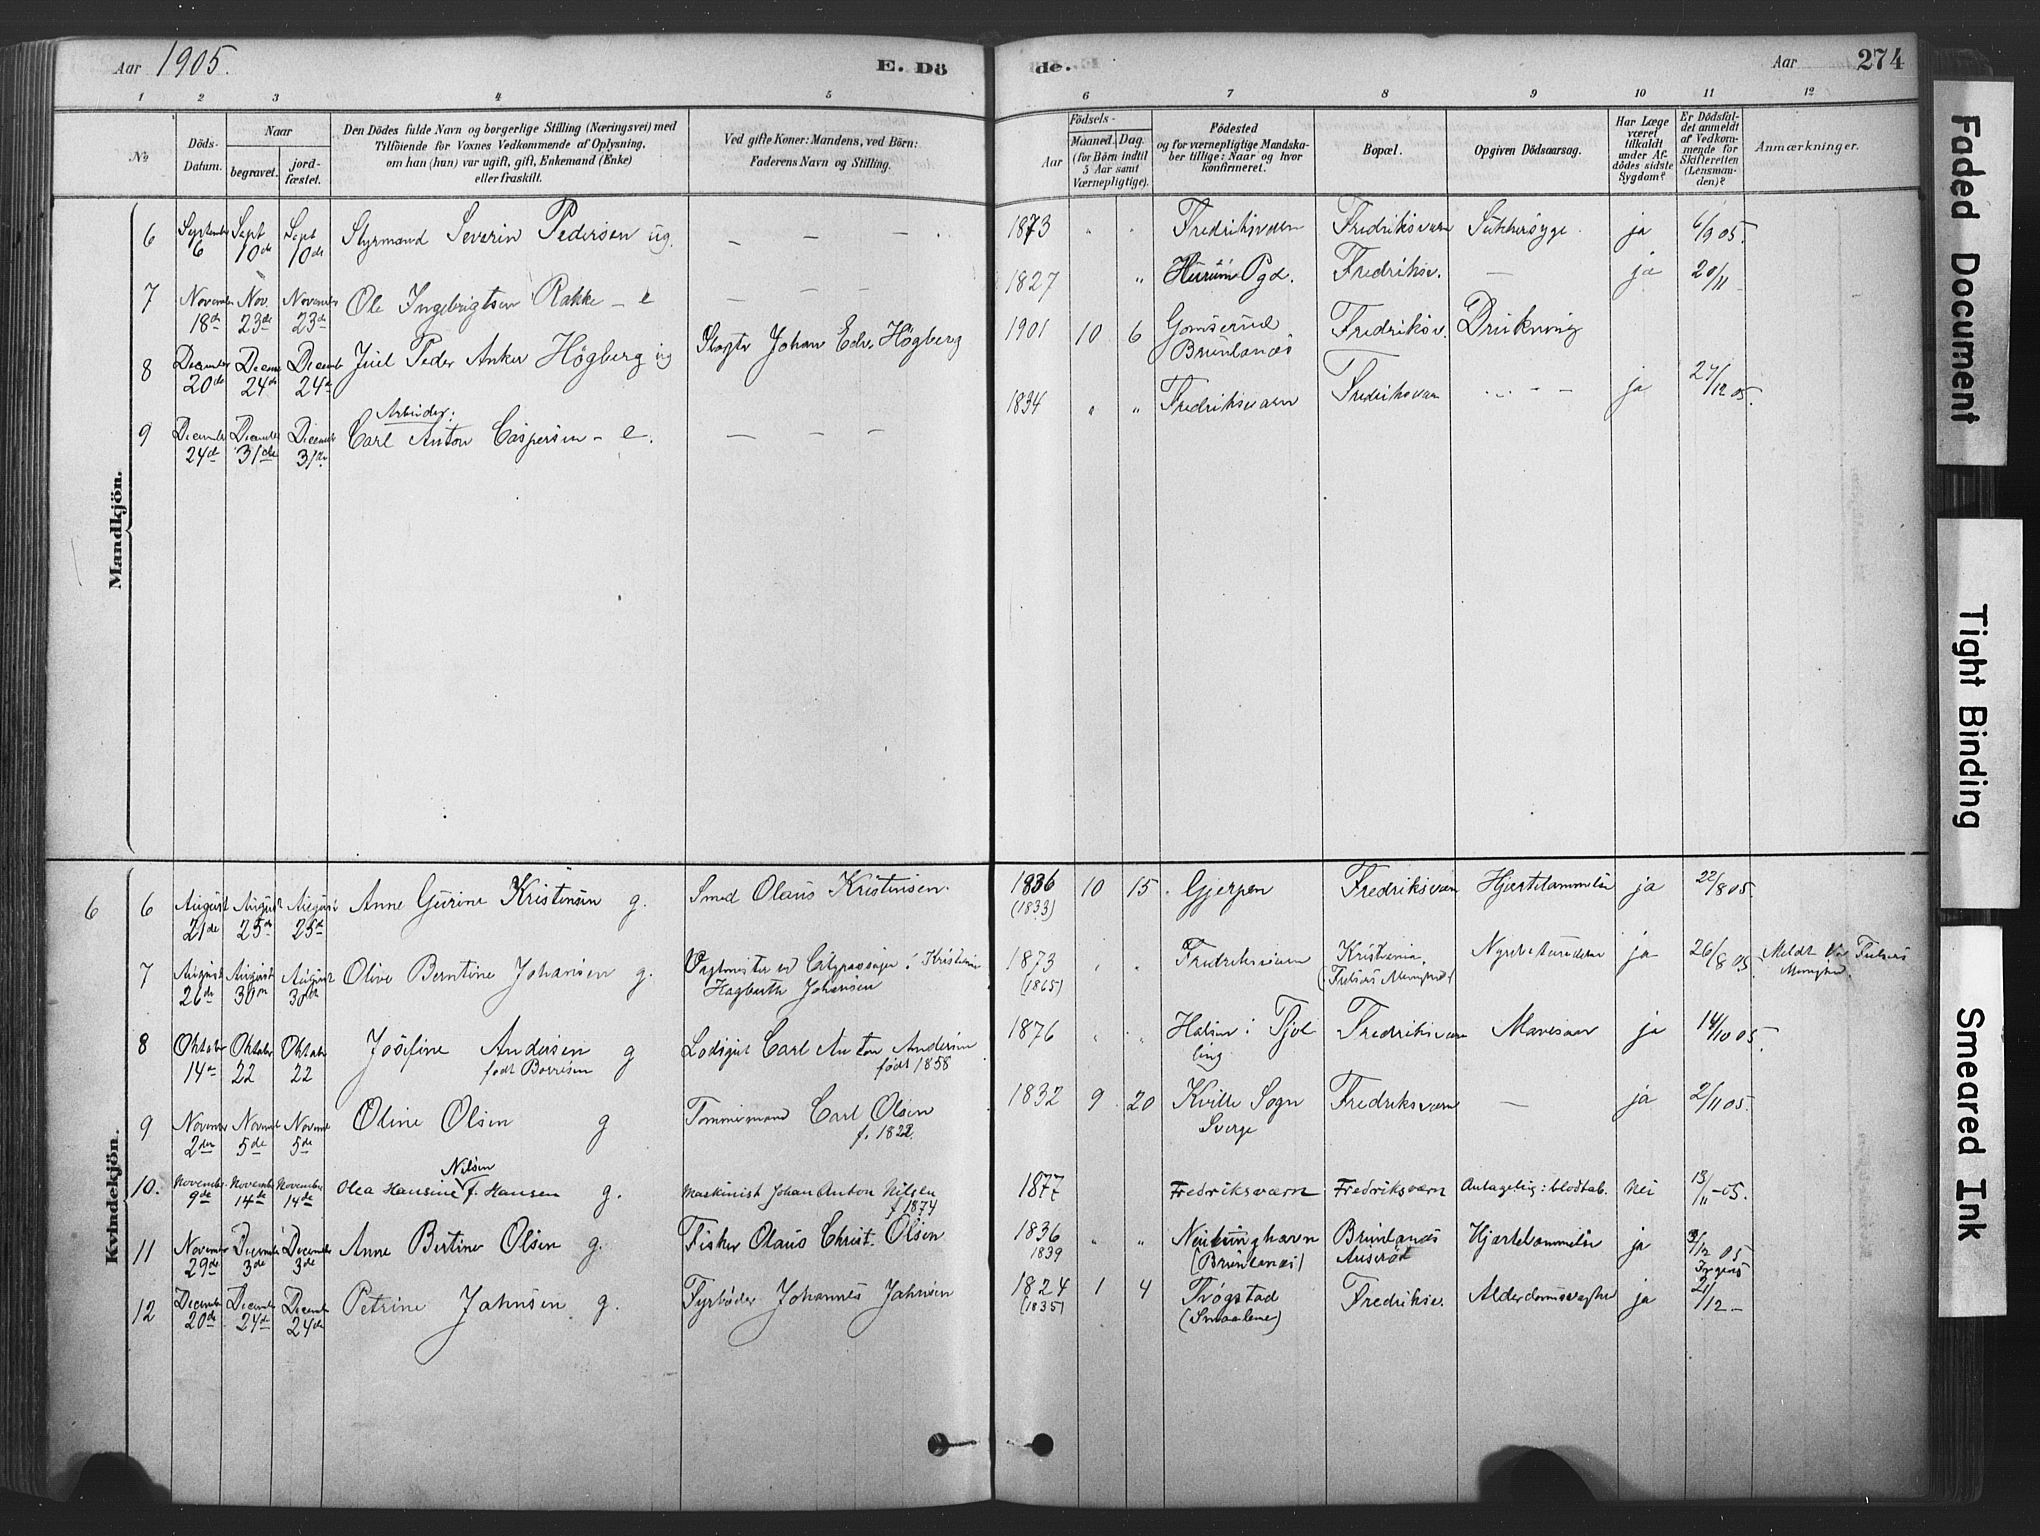 Aar 1905. E. Dö de. Aar 274
1 2 3 4 5 6 7 8 9 10 11 12
No
Döds-Datum.
Naar
begravet.
jord-fæstet.
Den Dödes fulde Navn og borgerlige Stilling (Næringsvei) med
Tilföiende for Voxnes Vedkommende af Oplysning,
om han (hun) var ugift, gift, Enkemand (Enke)
eller fraskilt.
Ved gifte Koner: Mandens, ved Börn:
Faderens Navn og Stilling.
Födsels-
Aar
Maaned.
Dag.
(for Börn indtil
5 Aar samt
Værnepligtige).
Födested
og for værnepligtige Mandska-
ber tillige: Naar og hvor
konfirmeret.
Bopæl.
Opgiven Dödsaarsag.
Har Læge
været
tilkaldt
under Af-
dödes sidste
Sygdom?
Er Dödsfal-
det anmeldt
af Vedkom-
mende for
Skifteretten
(Lensman-
den)?
Anmærkninger.
Mandkjön.
6 September 6 Sept 10de Sept 10de Styrmand Severin Pedersen ug. — — — 1873 " " Fredriksværn Fredriksværn Sukkersyge ja 6/9 05.
7 November 18de Nov. 23de November 23de Ole Ingebrigtsen Rakke – e — — — 1827 " Hurum Pgd. Fredriksv. — ja 20/11 –
8 December 20de December 24de December 24de Juel Peder Anker Högberg ug Johan Edv. Högberg 1901 10 6 Gomserud Brunlanæs Fredriksv. Drukning
9 December 24de December 31de December 31de Arbeider. Carl Anton Caspersen – e. — — — 1834 " " Fredriksværn Fredriksværn — ja 27/12 05.
Kvindekjön.
6 6 August 21de August 25de August 25de Anne Gurine Kristensen g. Smed Olaus Kristensen. 1836 (1833) 10 15 Gjerpen Fredriksværn Hjertelammelse ja 22/8 05.
7 August 26de August 30de August 30de Olive Berntine Johansen g. Hagbarth Johansen 1873 (1865) " " Fredriksværn Kristiania. ja 26/8 05. Meldt
8 Oktober 14de Oktober 22 Oktober 22 Josefine Andersen født Borresen g Lods Carl Anton Andersen født 1858 1876 " " Halsen i Tjölling Fredriksværn Mavesaar ja 14/10 05.
9 November 2den November 5de November 5de Oline Olsen g Tømmermand Carl Olsen f. 1822. 1832 9 20 Kville Sogn Sverge Fredriksværn — ja 2/11 05.
10. November 9de November 14de November 14de Olea Hansine Nilsen f. Hansen g. Maskinist Johan Anton Nilsen f 1874 1877 Fredriksværn Fredriksværn Antagelig: blodtab. Nei 13/11 – 05.
11 November 29de December 3de December 3de Anne Bertine Olsen g. Fisker Olaus Christ. Olsen 1836 1839 " " Nevlunghavn (Brunlanæs) Brunlanæs Hjertelammelse ja 3/12 05
12 December 20de December 24de December 24de Petrine Jahnsen g. Fyrböder Johannes Jahnsen 1824 (1835) 1 4 Trøgstad (Smaalene) Fredriksv. Alderdomssvaghed ja 21/12 –
Faded Document
Tight Binding
Smeared Ink